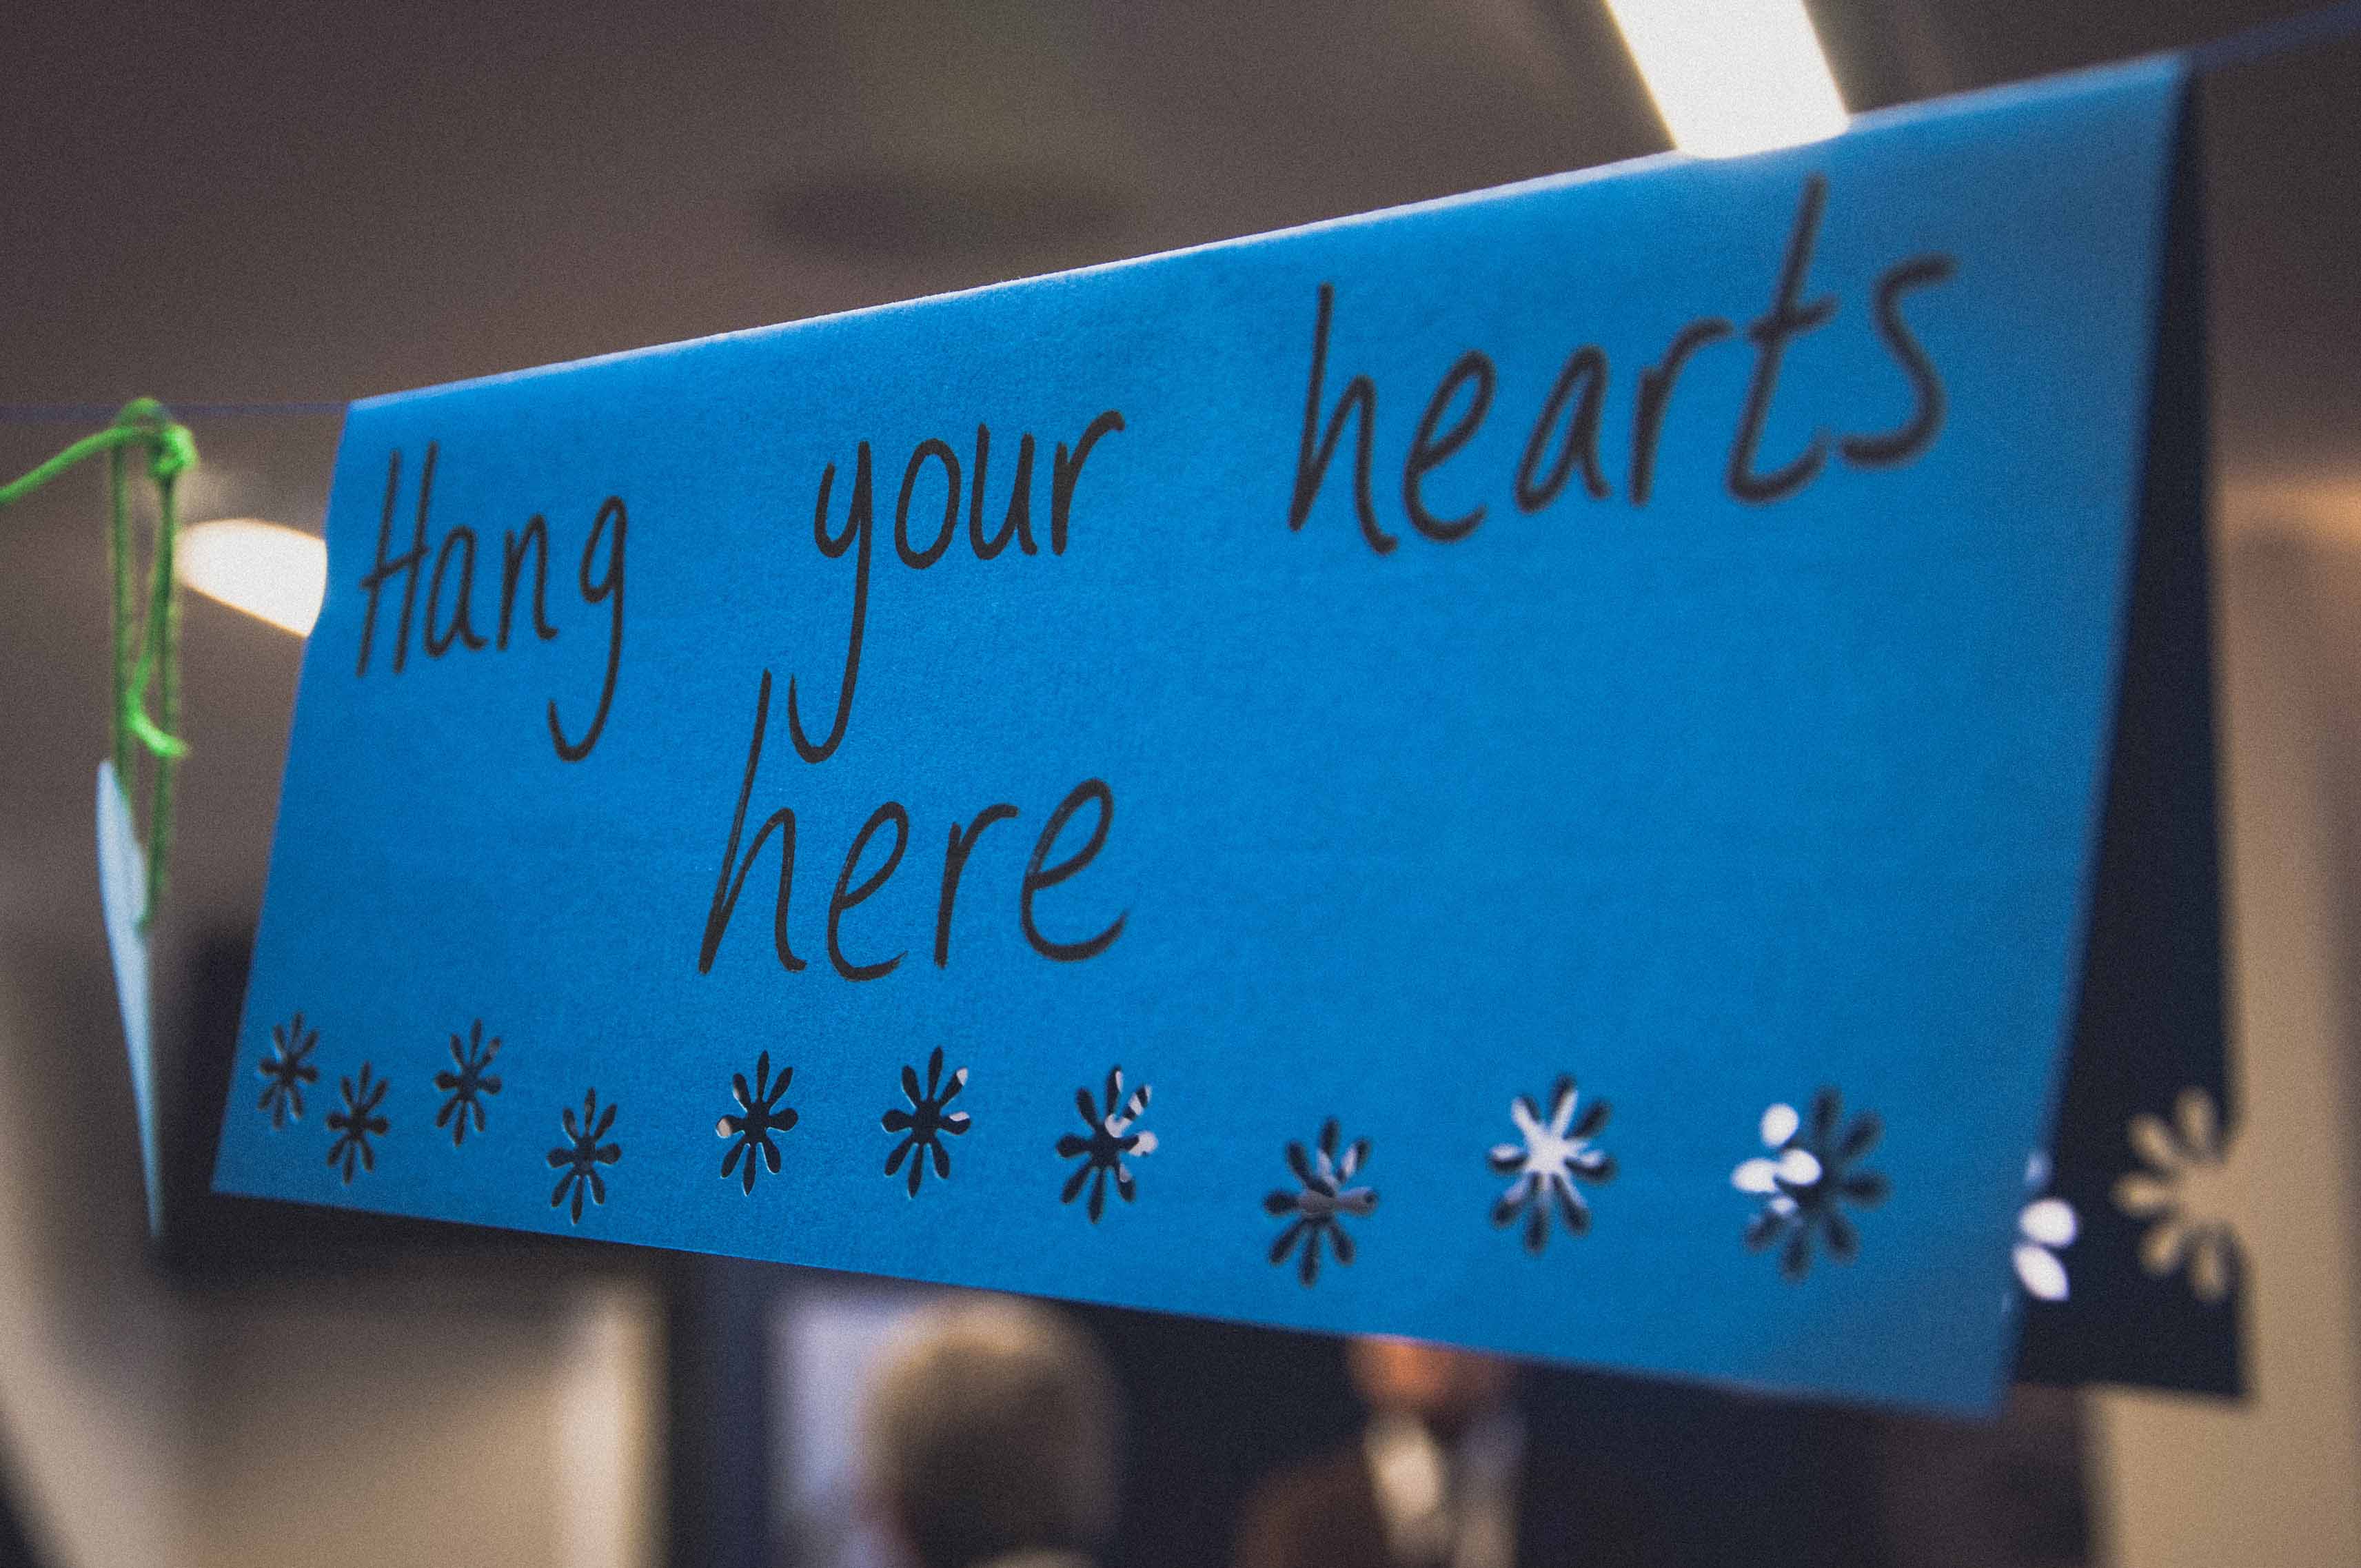 Hang your hearts
here